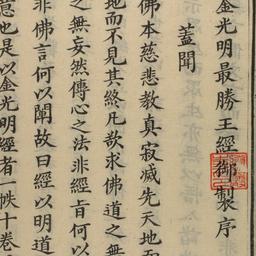 金光明最勝王經御製序
蓋聞
佛本慈悲教真寂滅先天地而
地而不見其終凡欲求佛道之無
之無妄然傳心之法非經旨何以
非佛言何以闡故曰經以明道
意也是以金光明經者一帙十卷